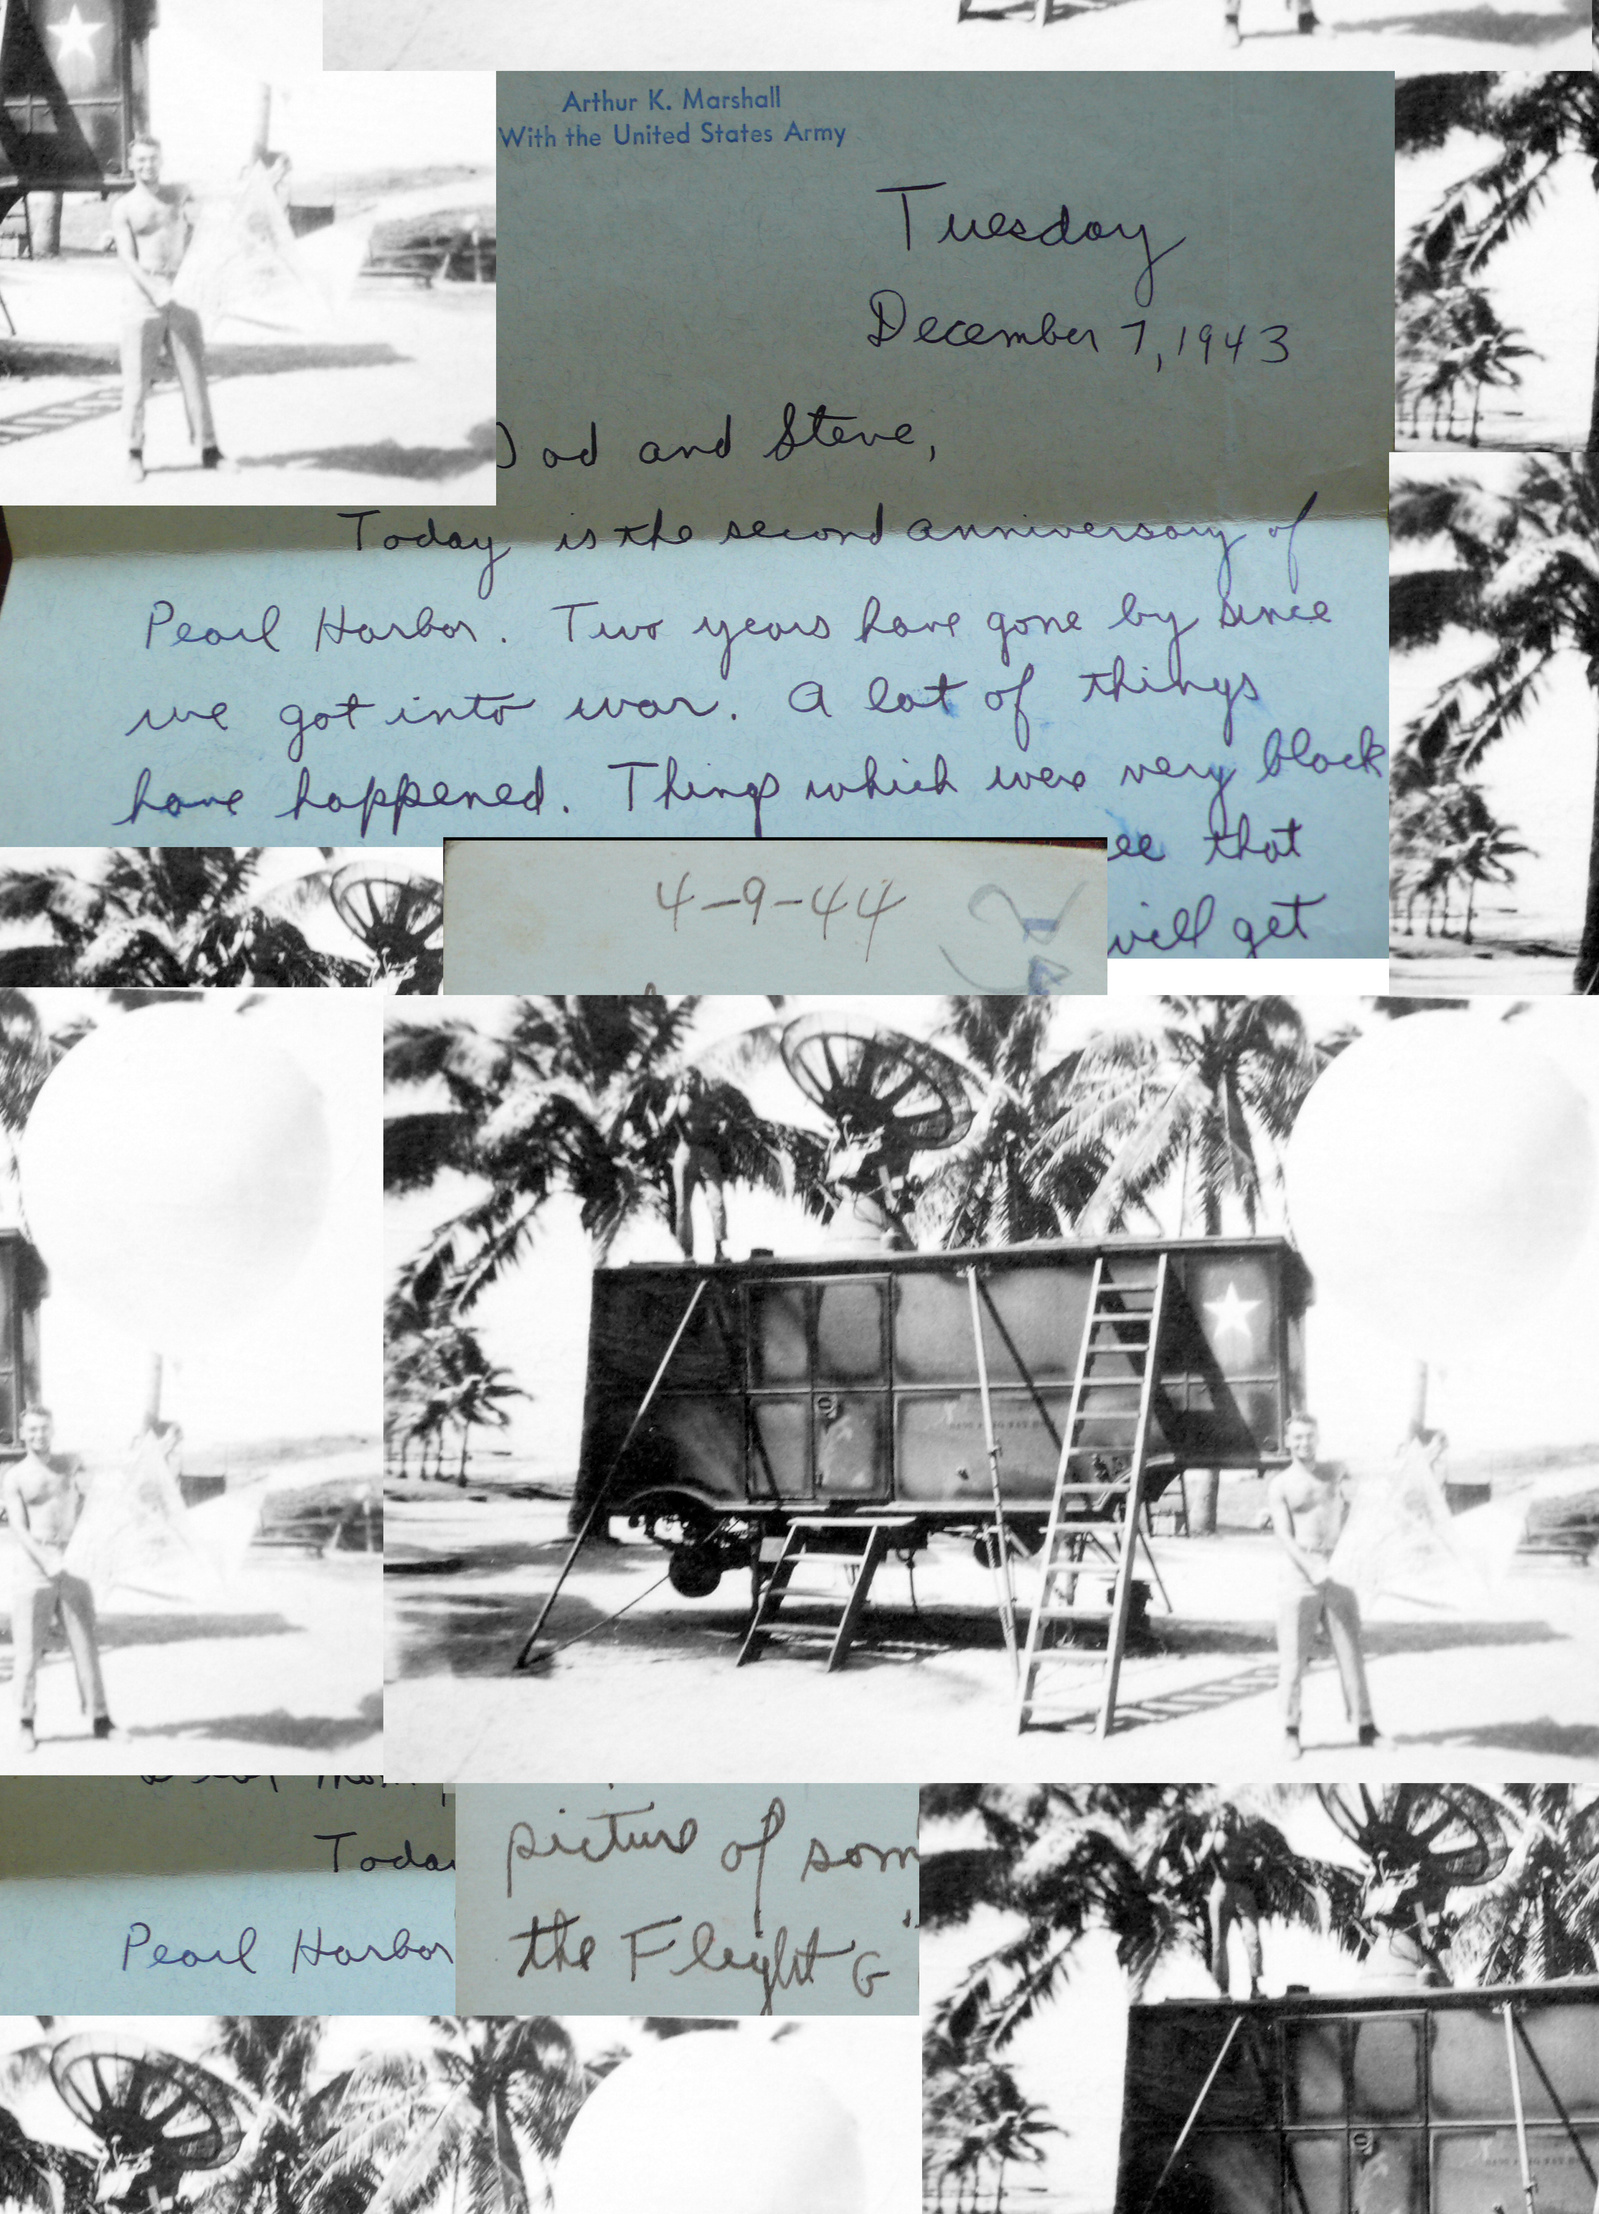 Arthur K. Marshall
With the United States Army
Tuesday
December 7, 1943
Dad and Steve,
Today is the second anniversary of
Pearl Harbor. Two years have gone by since
we got into war. A lot of things
have happened. Things which were very black
ee that
will get
4-9-44
Today
Pearl Harbor
picture of som
the Flight G